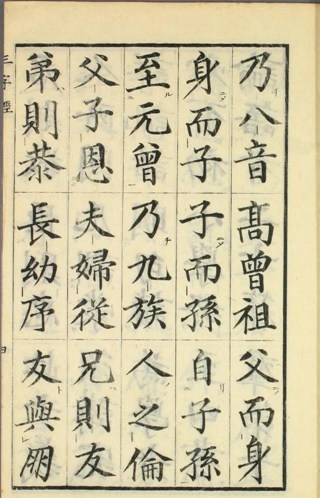 乃八音高曾祖父而身
身而子子而孫自子孫
至元曾乃九族人之倫
父子恩夫婦從兄則友
弟則恭長幼序友與朋
三字經
四